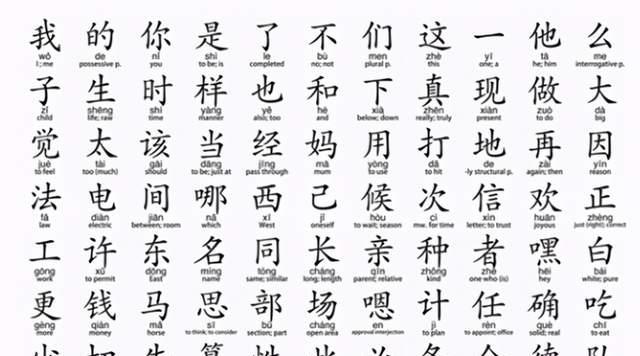 我 的 你 是 了 不 们 这 一 他 么
wǒ de nǐ shì le bù men zhè yī tā me
I; me possessive p. you to be; is completed no; not plural p. this one; a he; him interrogative p.
子 生 时 样 也 和 下 真 现 做 大
zǐ shēng shí yàng yě hé xià zhēn xiàn zuò dà
child life; raw time manner also; too and below; down really; truly present to do big
觉 太 该 当 经 妈 用 打 地 再 因
jué tài gāi dāng jīng mā yòng dǎ de zài yīn
to feel too (much) should to be; just at pass through mum to use to hit -ly structural p. again; then reason
法 电 间 哪 西 己 候 次 信 欢 正
fǎ diàn jiān nǎ xī jǐ hòu cì xìn huān zhèng
law electric between; room which West oneself to wait; season mw. for time letter; to trust joyous just (right); correct
工 许 东 名 同 长 亲 种 者 嘿 白
gōng xǔ dōng míng tóng cháng qīn zhǒng zhě hēi bái
work to permit East name same; similar long; length parent; relative kind one who (is) hey white; pure
更 钱 马 思 部 场 嗯 计 任 确 吃
gèng qián mǎ sī bù chǎng en jì rèn què chī
more money horse to think; to consider section; part open area approval interjection to plan to appoint; office solid; real to eat